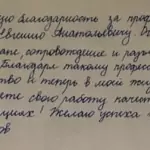 благодарность за проф
Евгению Анатольевичу. Оч
сопровождение и разъ
Благодаря такому професс
ство и теперь в моей жиз
ете свою работу на
циях! Желаю успеха
ов